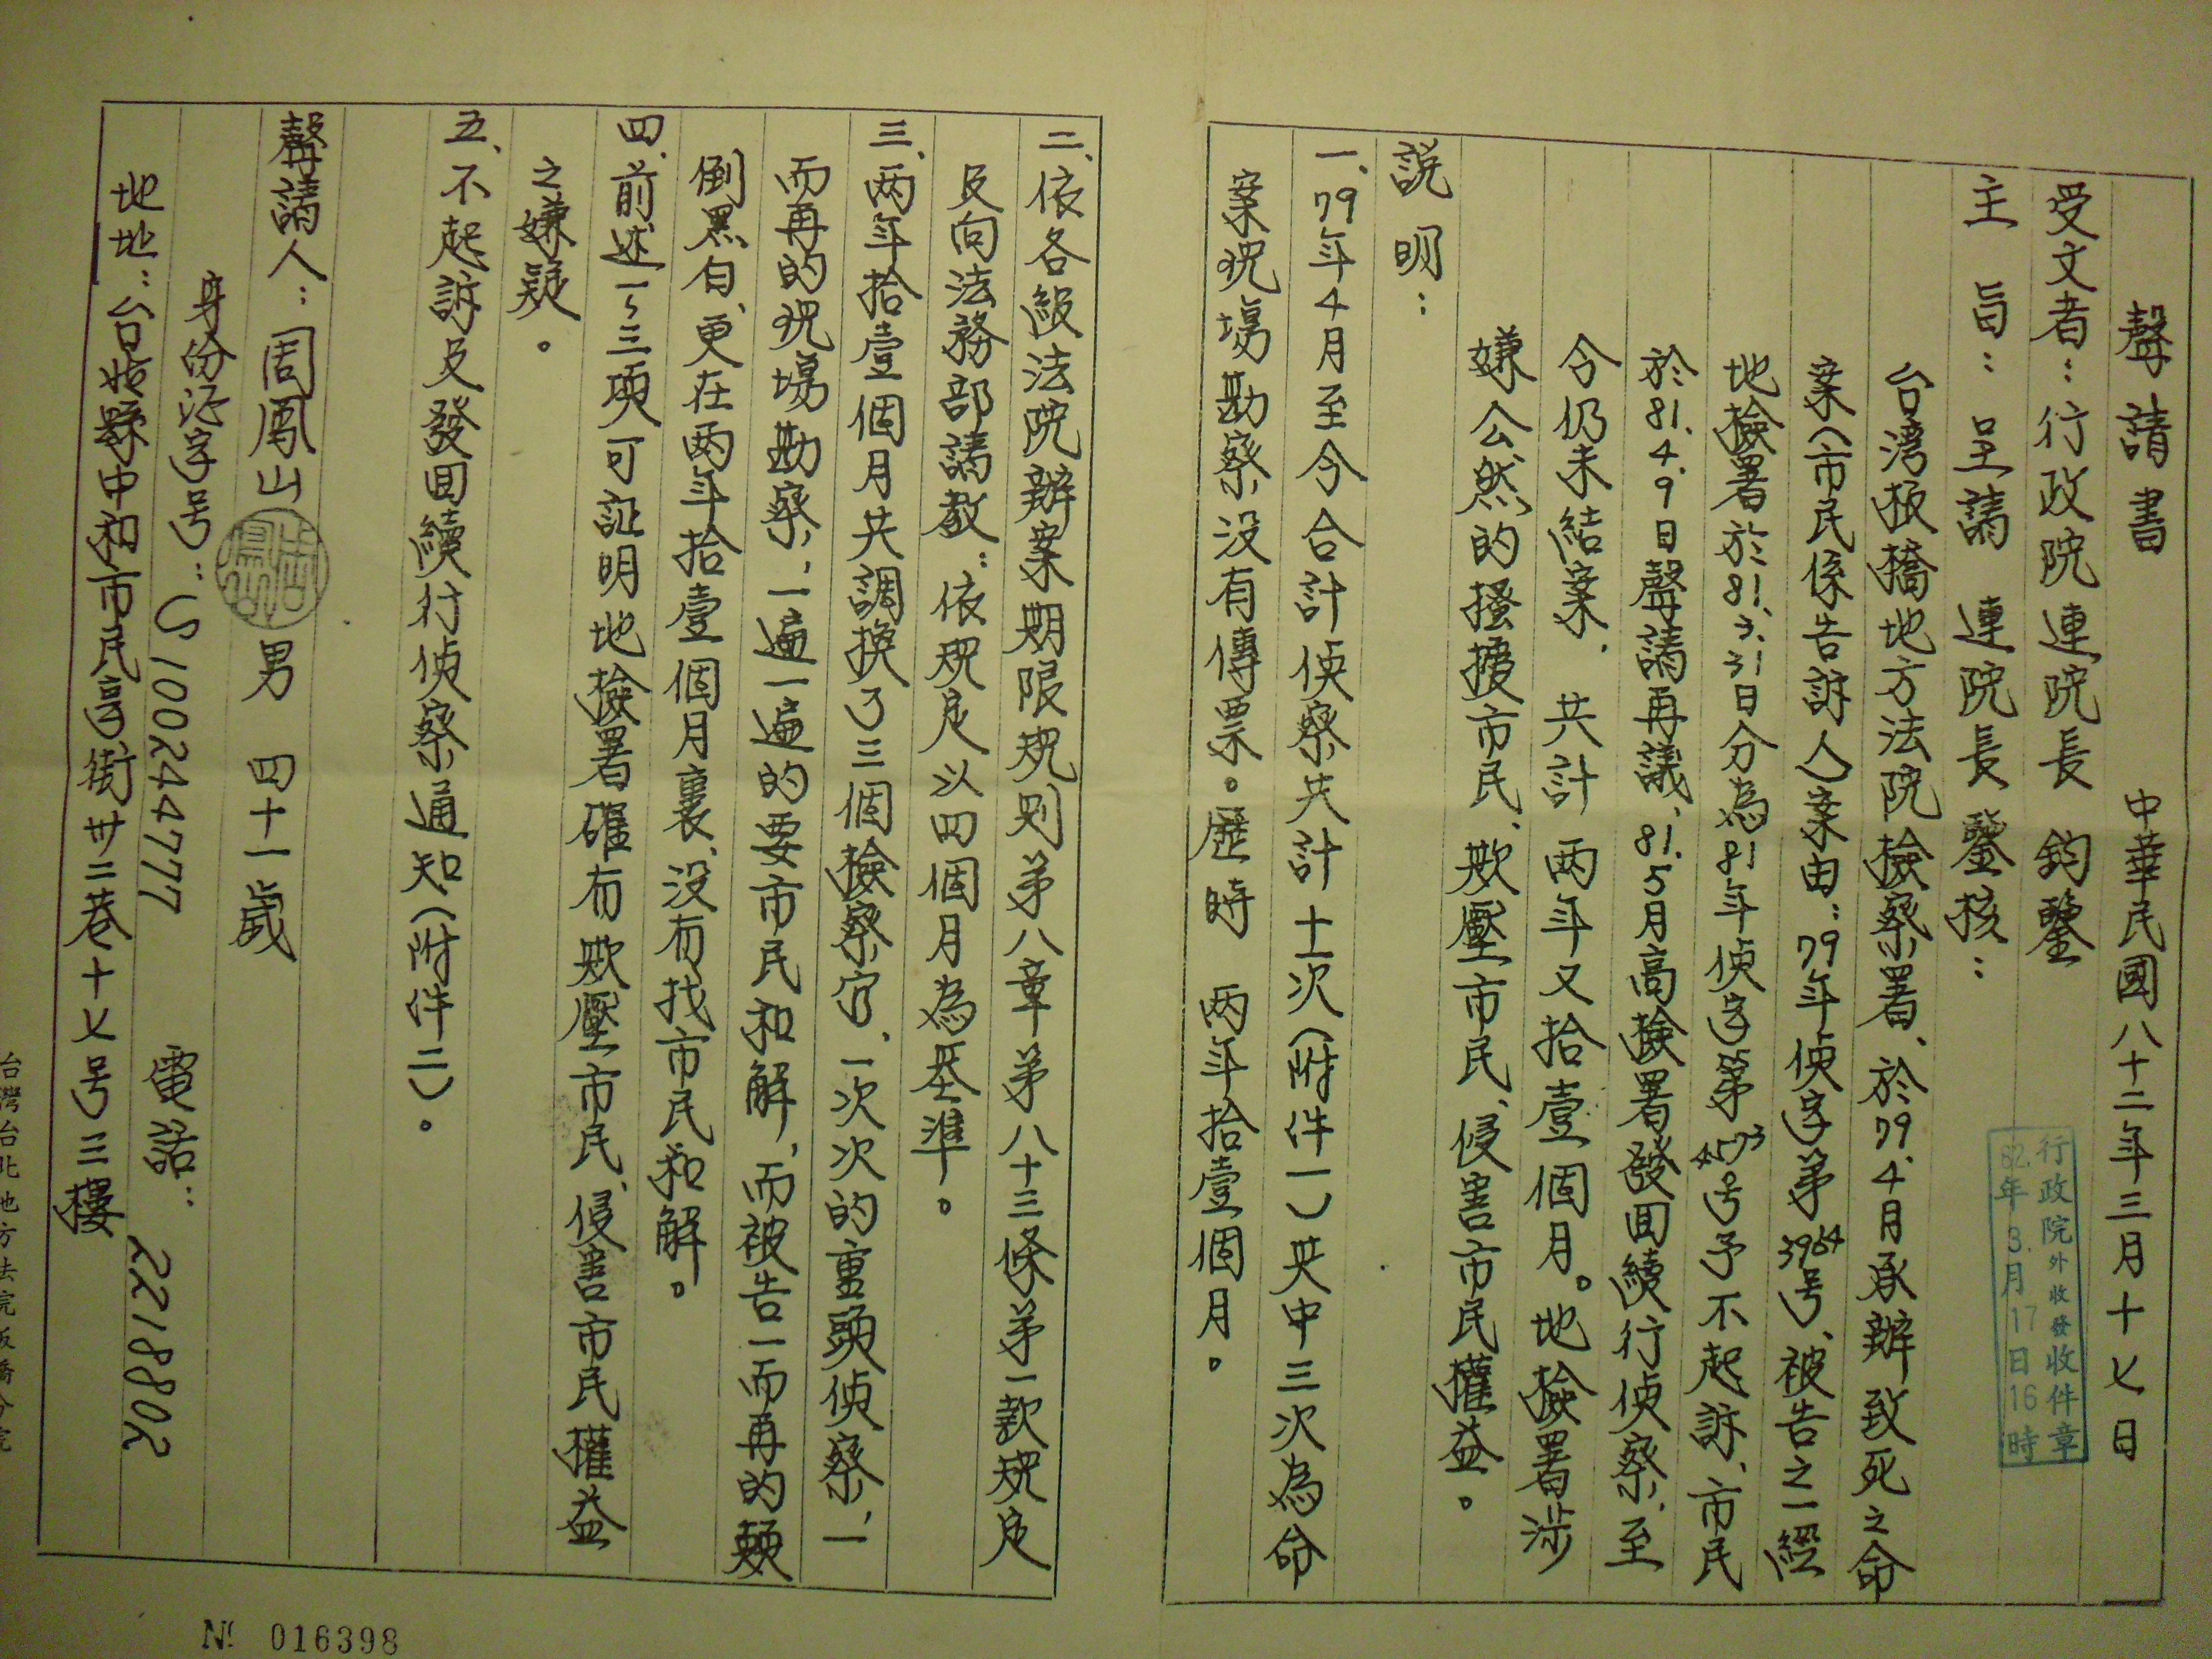 聲請書　中華民國八十二年三月十七日
受文者：行政院連院長　鈞鑒
主　旨：呈請　連院長鑒核：
台灣板橋地方法院檢察署、於79.4月承辦致死之命
案（市民係告訴人）案由：79年偵字第3964号、被告之一經
地檢署於81.3.31日分為81年偵字第4573号予不起訴、市民
於81.4.9日聲請再議、81.5月高檢署發回續行偵察、至
今仍未結案、共計兩年又拾壹個月。地檢署涉
嫌公然的搔擾市民、欺壓市民、侵害市民權益。
説明：
一、79年4月至今合計偵察共計十一次（附件一）其中三次為命
案現場勘察没有傳票。歷時　兩年拾壹個月。
二、依各級法院辦案期限規則第八章第八十三條第一款規定
及向法務部請教：依規定以四個月為基準。
三、兩年拾壹個月共調換了三個檢察官、一次次的重頭偵察、一
而再的現場勘察、一遍一遍的要市民和解、而被告一而再的顛
倒黑白、更在兩年拾壹個月裏、没有找市民和解。
四、前述一～三項可証明地檢署確有欺壓市民、侵害市民權益
之嫌疑。
五、不起訴及發回續行偵察通知（附件二）。
聲請人：周鳳山　男　四十一歲
身份证字号：S100244777　電話：2218802
地址：台北縣中和市民享街卅二巷十七号三樓
行政院外收發收件章
82.年3.月17日16時
台灣台北地方法院板橋分院
№ 016398